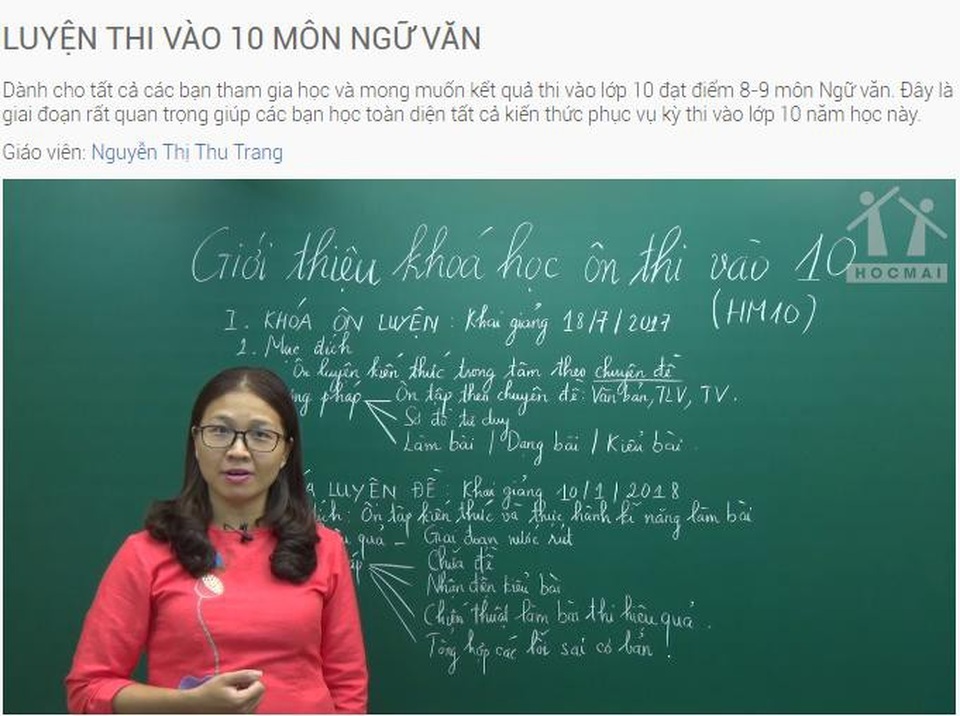 LUYỆN THI VÀO 10 MÔN NGỮ VĂN
Dành cho tất cả các bạn tham gia học và mong muốn kết quả thi vào lớp 10 đạt điểm 8-9 môn Ngữ văn. Đây là
giai đoạn rất quan trọng giúp các bạn học toàn diện tất cả kiến thức phục vụ kỳ thi vào lớp 10 năm học này.
Giáo viên: Nguyễn Thị Thu Trang
HOCMAI
Giới thiệu khoá học ôn thi vào 10
(HM10)
I. KHÓA ÔN LUYỆN: Khai giảng 18/7/2017
1. Mục đích
Ôn luyện kiến thức trọng tâm theo chuyên đề
pháp Ôn tập theo chuyên đề: Văn bản, TLV, TV.
Sơ đồ tư duy
Làm bài / Dạng bài / Kiểu bài.
LUYỆN ĐỀ: Khai giảng 10/1/2018
đích: Ôn tập kiến thức và thực hành kĩ năng làm bài
quả - Giai đoạn nước rút
Chữa đề
Nhận diện kiểu bài
Chiến thuật làm bài thi hiệu quả.
Tổng hợp các lỗi sai cơ bản!